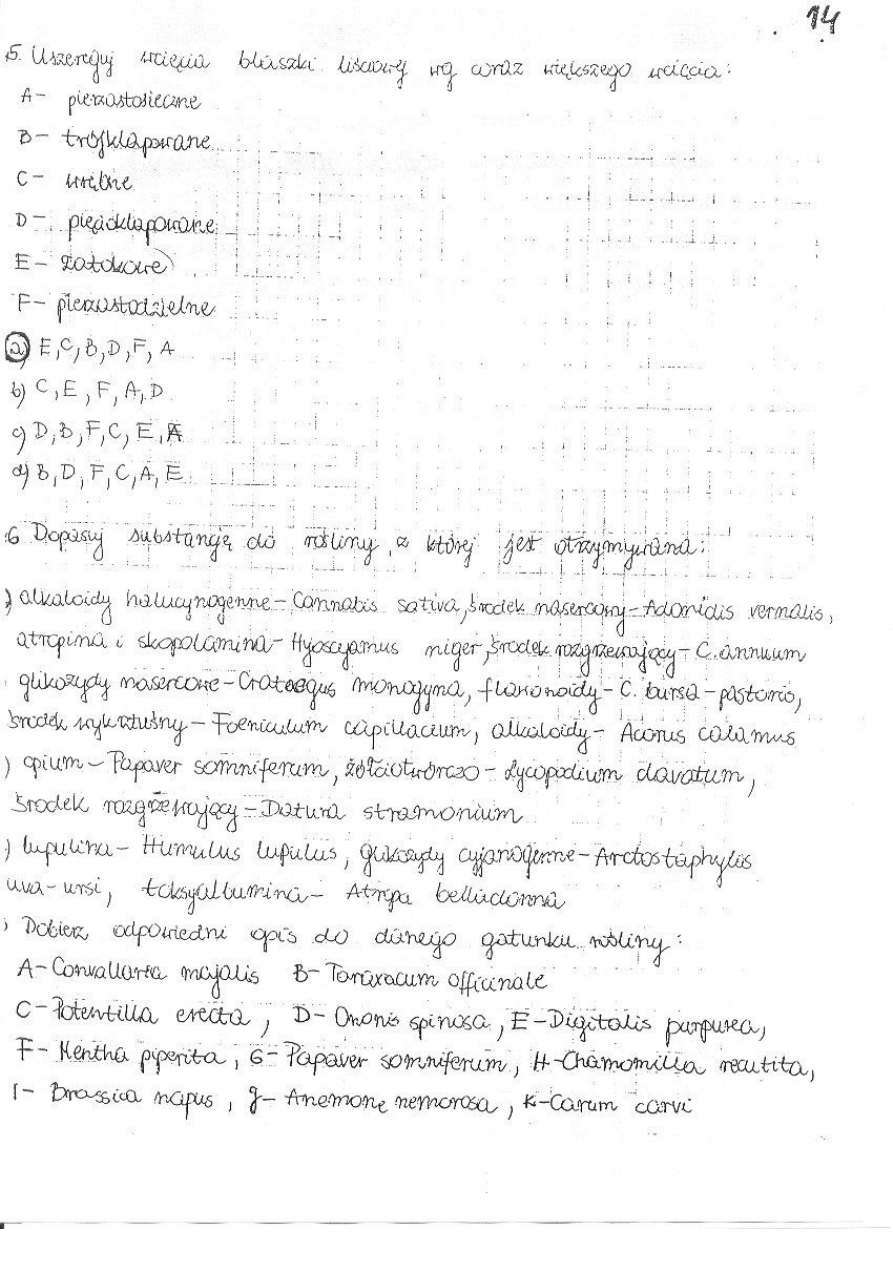 14
5. Uszereguj wcięcia blaszki liściowej wg coraz większego wcięcia:
A- pierzastosieczne
B- trójklapowane
C- wrębne
D- pięcioklapowane
E- zatokowe
F- pierzastodzielne
a) E, C, B, D, F, A
b) C, E, F, A, D
c) D, B, F, C, E, A
d) B, D, F, C, A, E
6 Dopasuj substancję do rośliny, z której jest otrzymywana:
) alkaloidy halucynogenne-Cannabis sativa, środek nasercowy-Adonidis vernalis,
atropina i skopolamina-Hyoscyamus niger, środek rozgrzewający-C. annuum
glikozydy nasercowe-Crataegus monogyna, flawonoidy-C. bursa-pastoris,
środek wykrztuśny-Foeniculum capillaceum, alkaloidy-Acorus calamus
) opium-Papaver somniferum, żółciotwórczo-Lycopodium clavatum,
środek rozgrzewający-Datura stramonium
) lupulina-Humulus lupulus, glikozydy cyjanogenne-Arctostaphylis
uva-ursi, toksyallbumina-Atropa belladonna
) Dobierz odpowiedni opis do danego gatunku rośliny:
A-Convallaria majalis B-Taraxacum officinale
C-Potentilla erecta, D-Ononis spinosa, E-Digitalis purpurea,
F-Mentha piperita, G-Papaver somniferum, H-Chamomilla recutita,
I-Brassica napus, J-Anemone nemorosa, K-Carum carvi